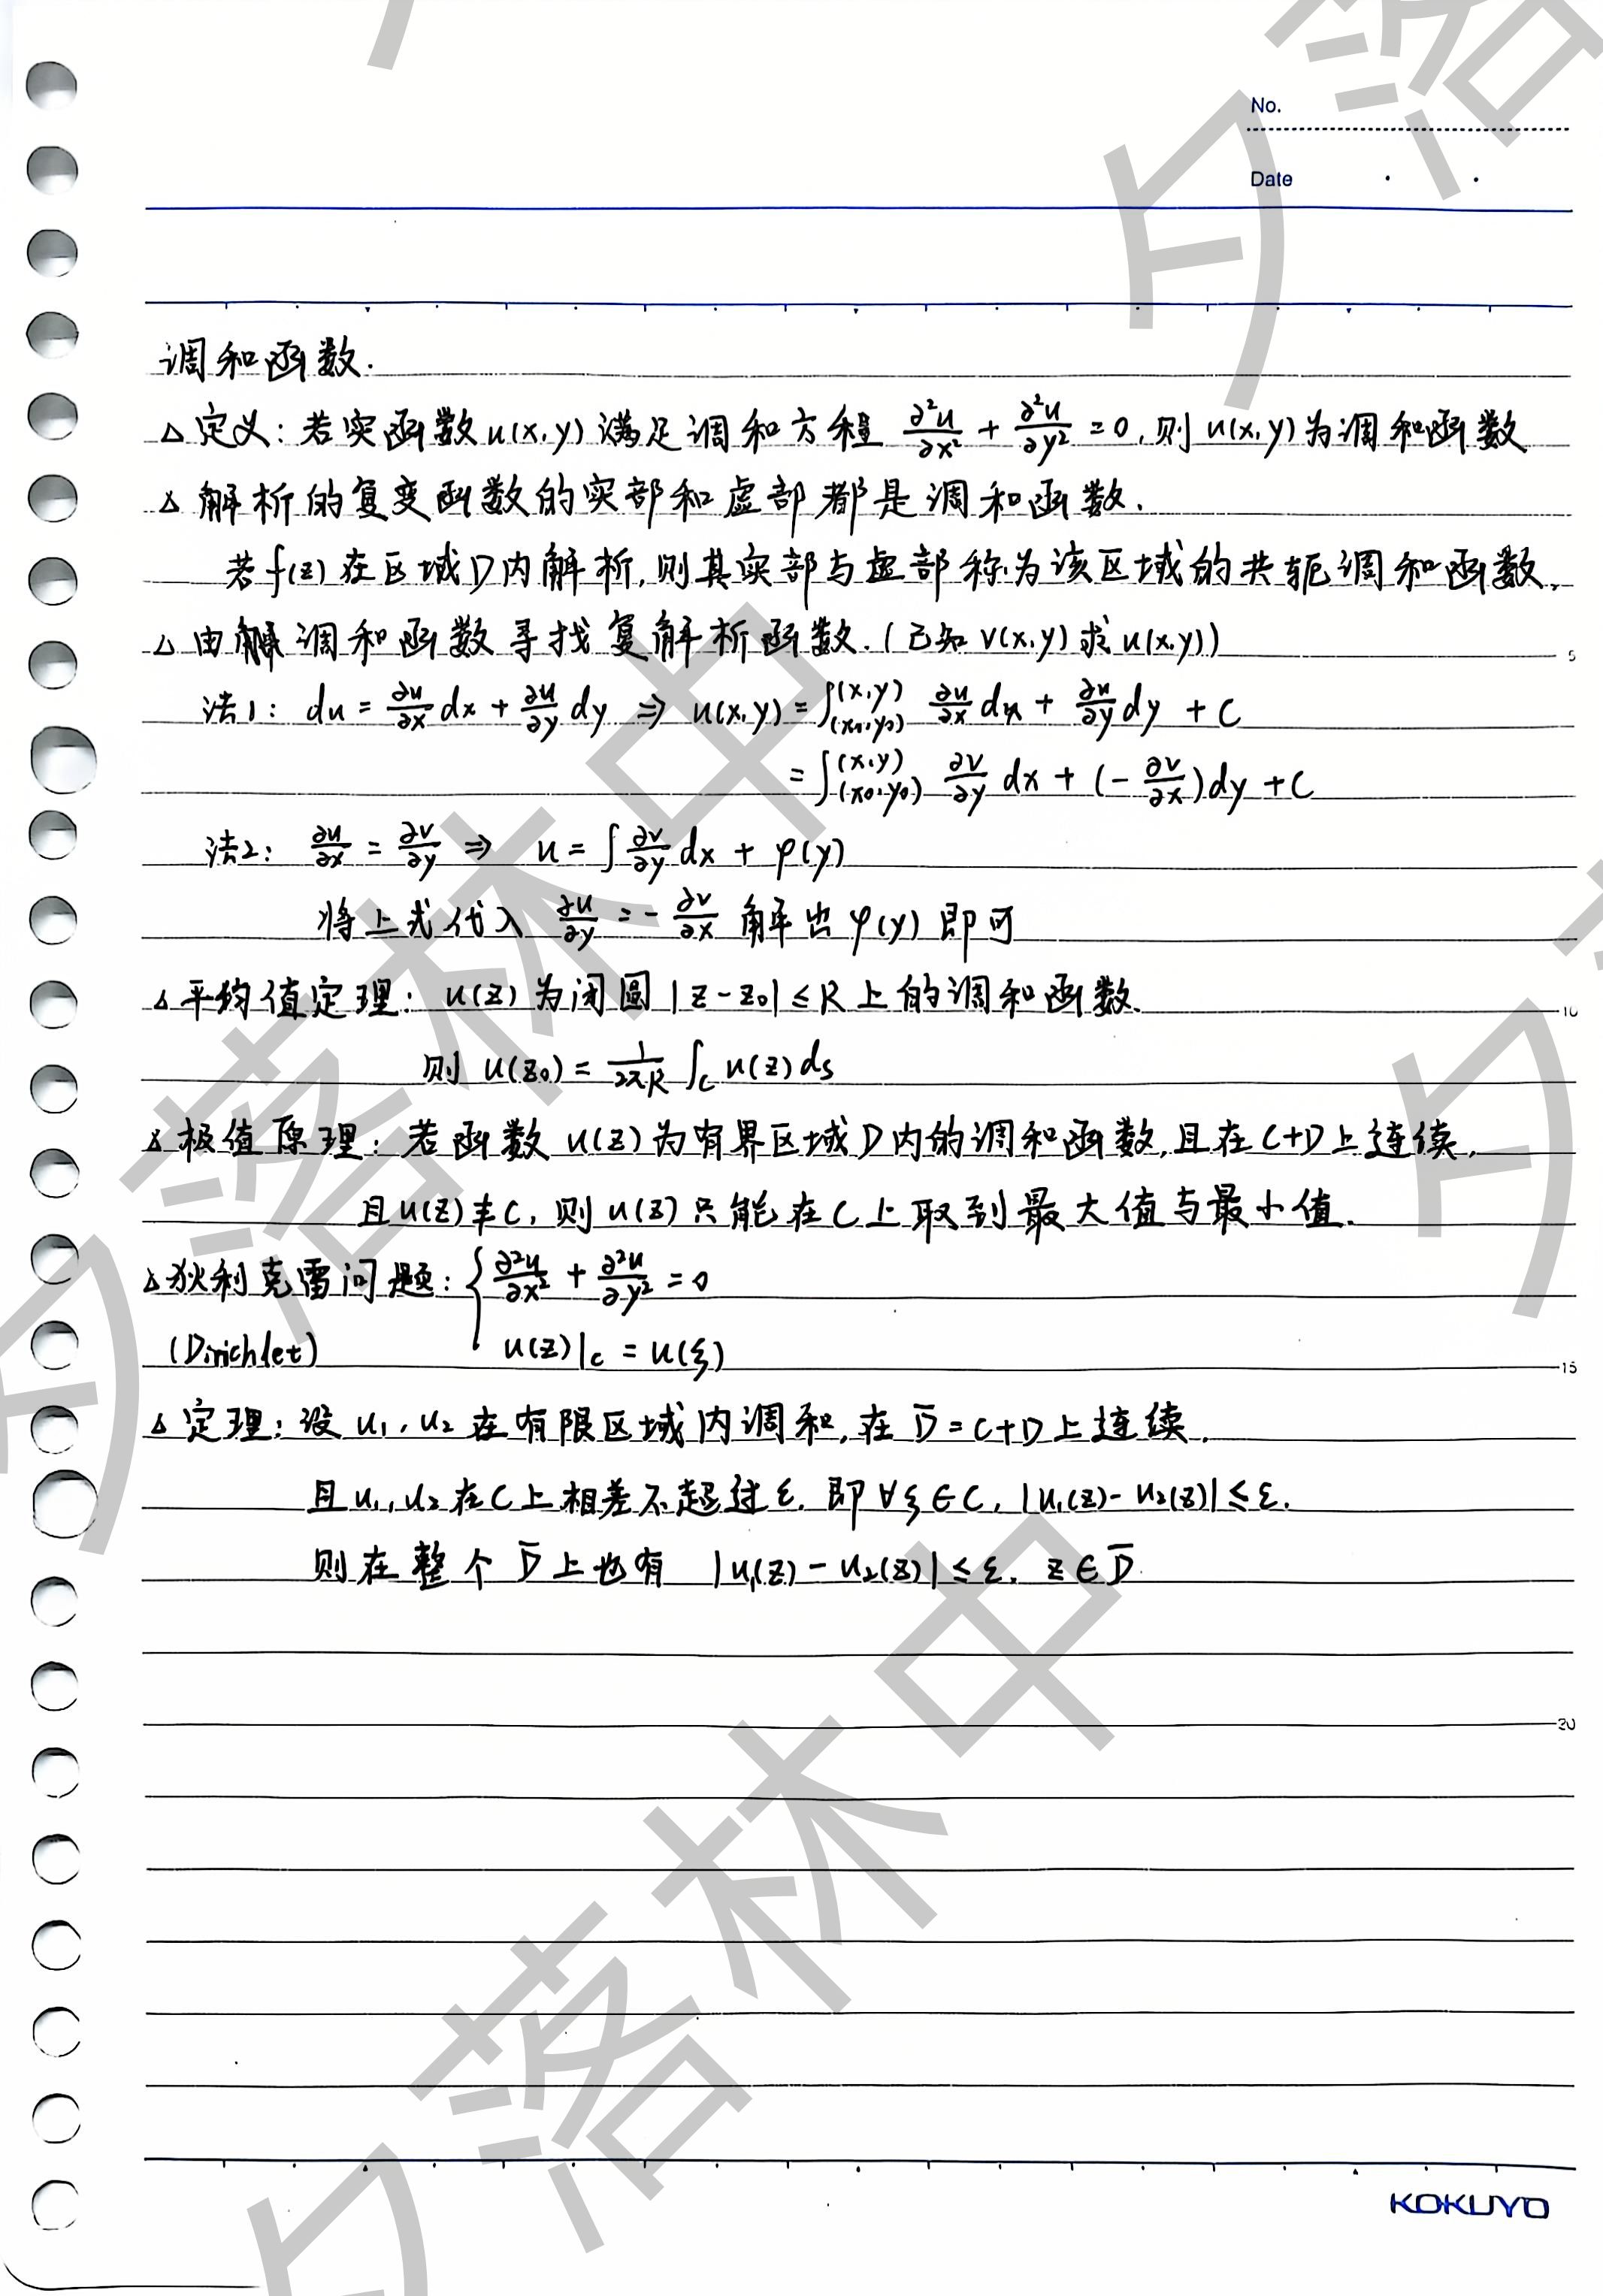 No.
Date
调和函数.
△ 定义: 若实函数 u(x,y) 满足调和方程 ∂²u/∂x² + ∂²u/∂y² = 0, 则 u(x,y) 为调和函数
△ 解析的复变函数的实部和虚部都是调和函数.
若 f(z) 在区域D内解析, 则其实部与虚部称为该区域的共轭调和函数.
△ 由调和函数寻找复解析函数. (已知 v(x,y) 求 u(x,y))
5
法1: du = ∂u/∂x dx + ∂u/∂y dy ⇒ u(x,y) = ∫_(x₀,y₀)^(x,y) ∂u/∂x dx + ∂u/∂y dy + C
= ∫_(x₀,y₀)^(x,y) ∂v/∂y dx + (-∂v/∂x) dy + C
法2: ∂u/∂x = ∂v/∂y ⇒ u = ∫ ∂v/∂y dx + φ(y)
将上式代入 ∂u/∂y = -∂v/∂x 解出 φ(y) 即可
△ 平均值定理: u(z) 为闭圆 |z-z₀| ≤ R 上的调和函数.
10
则 u(z₀) = 1/2πR ∫_C u(z) ds
△ 极值原理: 若函数 u(z) 为有界区域D内的调和函数, 且在 C+D 上连续,
且 u(z) ≢ C, 则 u(z) 只能在 C 上取到最大值与最小值.
△ 狄利克雷问题: { ∂²u/∂x² + ∂²u/∂y² = 0
(Dirichlet) u(z)|_C = u(ξ)
15
△ 定理: 设 u₁, u₂ 在有限区域内调和, 在 D̄ = C+D 上连续.
且 u₁, u₂ 在 C 上相差不超过 ε. 即 ∀ξ∈C, |u₁(z) - u₂(z)| ≤ ε.
则在整个 D̄ 上也有 |u₁(z) - u₂(z)| ≤ ε. z∈D̄
20
KOKUYO
夕落林中
夕落林中
夕落
夕